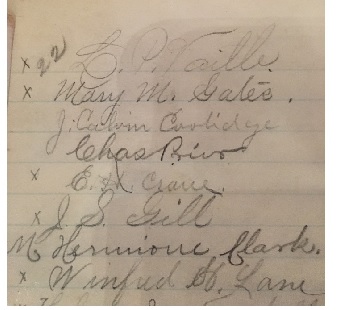 x 22 L. P. Vaille.
x Mary M. Gates.
J. Calvin Coolidge
Chas
x E. H. Crane.
x J. S. Gill
M. Hermione Clark.
x Winfred H. Lane